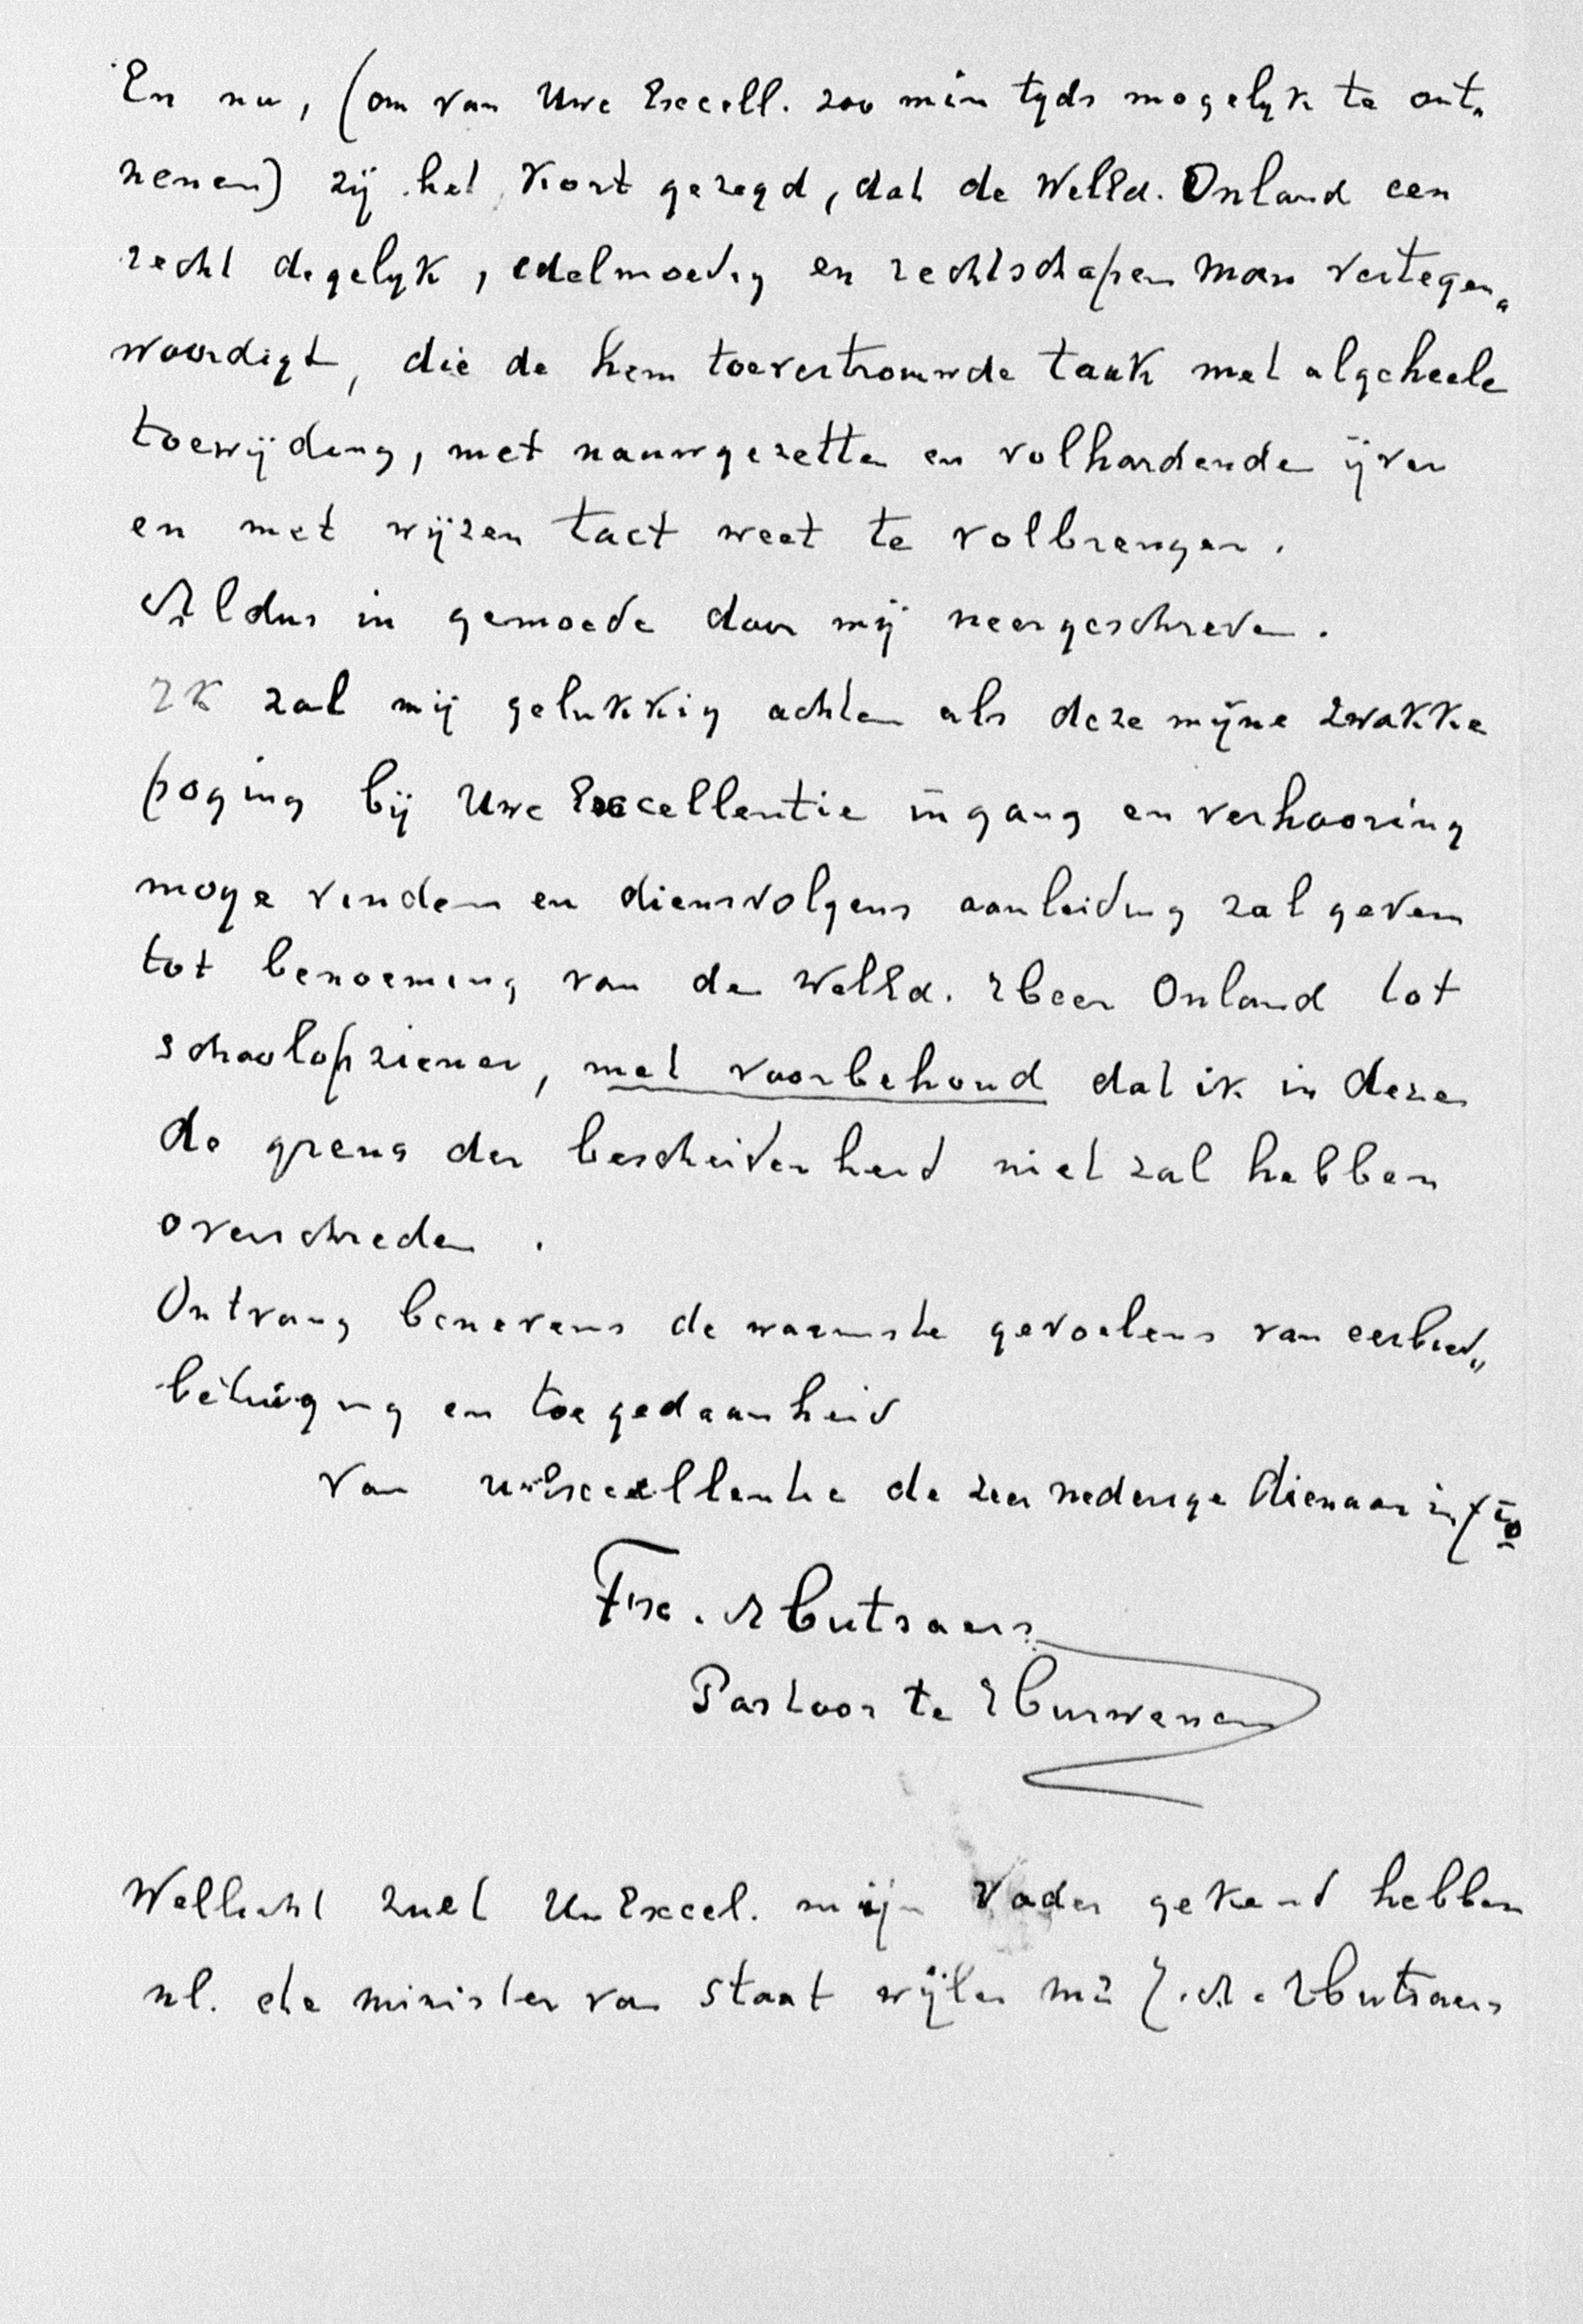 En nu, (om van Uwe Excell. zoo min tyds mogelyk te ont„
nemen) zij het kort gezegd, dat de WelEd. Onland een
recht degelyk, edelmoedig en rechtschapen man vertegen„
woordigt, die de hem toevertrouwde taak met algeheele
toewijding, met nauwgezetten en volhardende ijver
en met wijzen tact weet te volbrengen.
Aldus in gemoede door mij neergeschreven.
Ik zal mij gelukkig achten als deze mijne zwakke
poging bij Uwe Excellentie ingang en verhooring
moge vinden en diensvolgens aanleiding zal geven
tot benoeming van de WelEd. Heer Onland tot
schoolopziener, met voorbehoud dat ik in dezen
de grens der bescheidenheid niet zal hebben
overschreden.
Ontvang benevens de warmste gevoelens van eerbied„
betuiging en toegedaanheid
van uwExcellentie de zeer nederige dienaar in
Frc. A Hutsaers
Pastoor te Hurwenen
Wellicht zuel Uw Excel. mijn Vader gekend hebben
nl. de minister van Staat wijlen mr J. A. Hutsaers